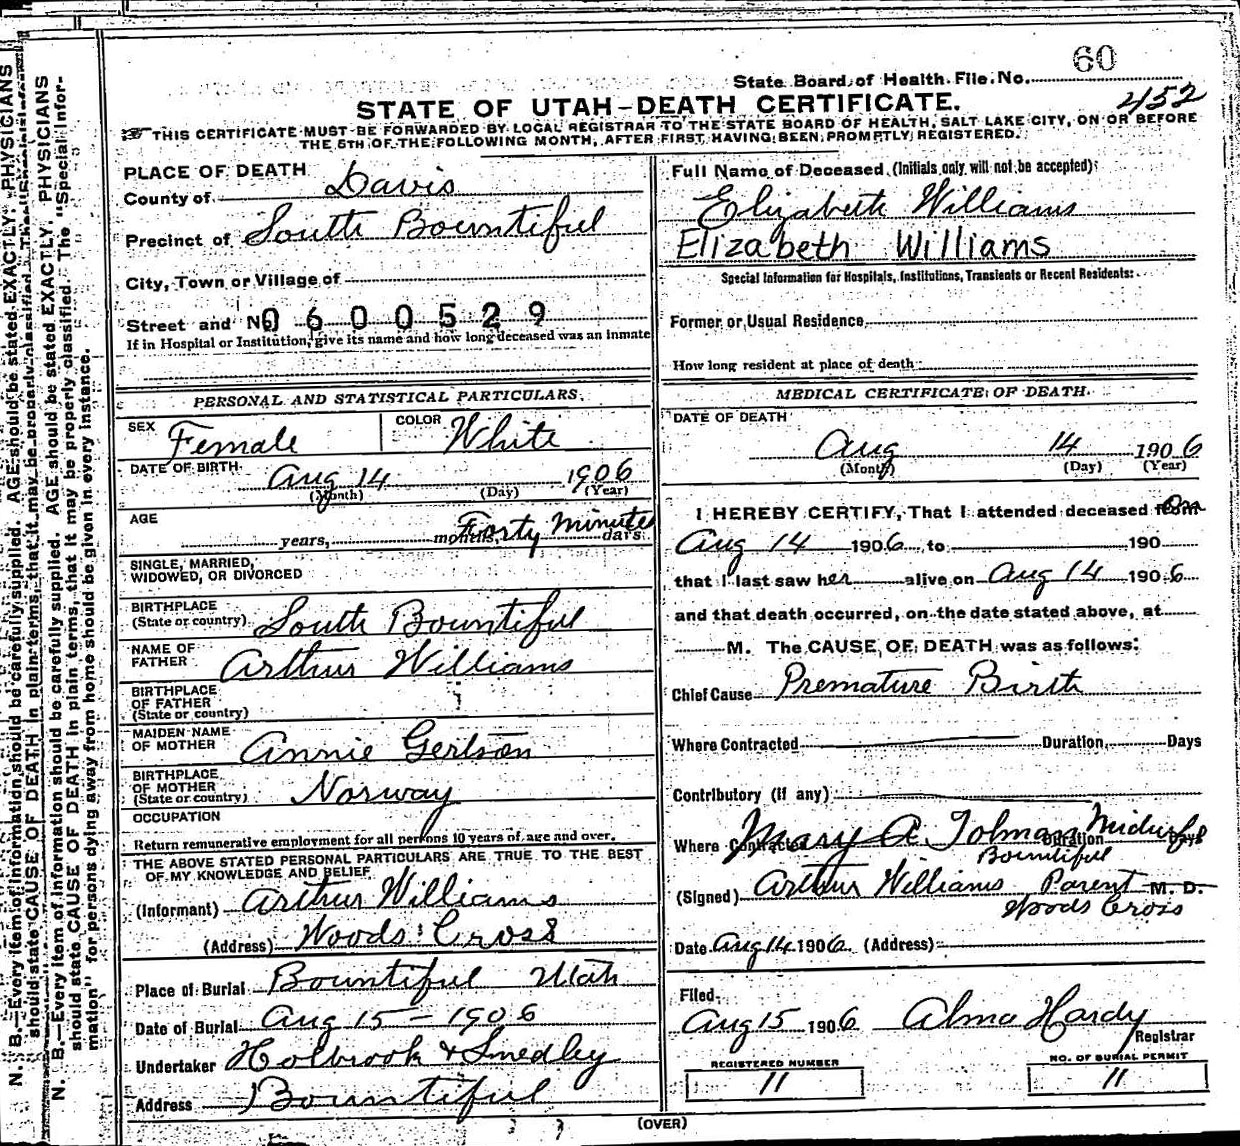 60
State Board of Health File No.
452
STATE OF UTAH—DEATH CERTIFICATE.
THIS CERTIFICATE MUST BE FORWARDED BY LOCAL REGISTRAR TO THE STATE BOARD OF HEALTH, SALT LAKE CITY, ON OR BEFORE
THE 5TH OF THE FOLLOWING MONTH, AFTER FIRST HAVING BEEN PROMPTLY REGISTERED.
PLACE OF DEATH
County of Davis
Precinct of South Bountiful
City, Town or Village of
Street and No. 0600529
If in Hospital or Institution, give its name and how long deceased was an inmate
PERSONAL AND STATISTICAL PARTICULARS.
SEX Female COLOR White
DATE OF BIRTH Aug 14 1906
(Month) (Day) (Year)
AGE Forty Minutes
years, months, days.
SINGLE, MARRIED,
WIDOWED, OR DIVORCED
BIRTHPLACE
(State or country) South Bountiful
NAME OF
FATHER Arthur Williams
BIRTHPLACE
OF FATHER
(State or country)
MAIDEN NAME
OF MOTHER Annie Gerlson
BIRTHPLACE
OF MOTHER
(State or country) Norway
OCCUPATION
Return remunerative employment for all persons 10 years of age and over.
THE ABOVE STATED PERSONAL PARTICULARS ARE TRUE TO THE BEST
OF MY KNOWLEDGE AND BELIEF
(Informant) Arthur Williams
(Address) Woods Cross
Place of Burial Bountiful Utah
Date of Burial Aug 15 – 1906
Undertaker Holbrook & Smedley
Address Bountiful
Full Name of Deceased (Initials only will not be accepted)
Elizabeth Williams
Elizabeth Williams
Special Information for Hospitals, Institutions, Transients or Recent Residents:
Former or Usual Residence
How long resident at place of death
MEDICAL CERTIFICATE OF DEATH.
DATE OF DEATH
Aug 14 1906
(Month) (Day) (Year)
I HEREBY CERTIFY, That I attended deceased from on
Aug 14 1906, to 190
that I last saw her alive on Aug 14 1906.
and that death occurred, on the date stated above, at
M. The CAUSE OF DEATH was as follows:
Chief Cause Premature Birth
Where Contracted Duration, Days
Contributory (if any)
Where Contracted Mary A Tolman Midwife Duration Days
Bountiful
(Signed) Arthur Williams Parent M. D.
Woods Cross
Date Aug 14 1906. (Address)
Filed,
Aug 15 1906 Alma Hardy
Registrar
REGISTERED NUMBER
11
NO. OF BURIAL PERMIT
11
(OVER)
N. B.—Every item of information should be carefully supplied. AGE should be stated EXACTLY. PHYSICIANS
should state CAUSE OF DEATH in plain terms, that it may be properly classified. The "Special Infor-
N. B.—Every item of information should be carefully supplied. AGE should be stated EXACTLY. PHYSICIANS
should state CAUSE OF DEATH in plain terms, that it may be properly classified. The "Special Infor-
mation" for persons dying away from home should be given in every instance.